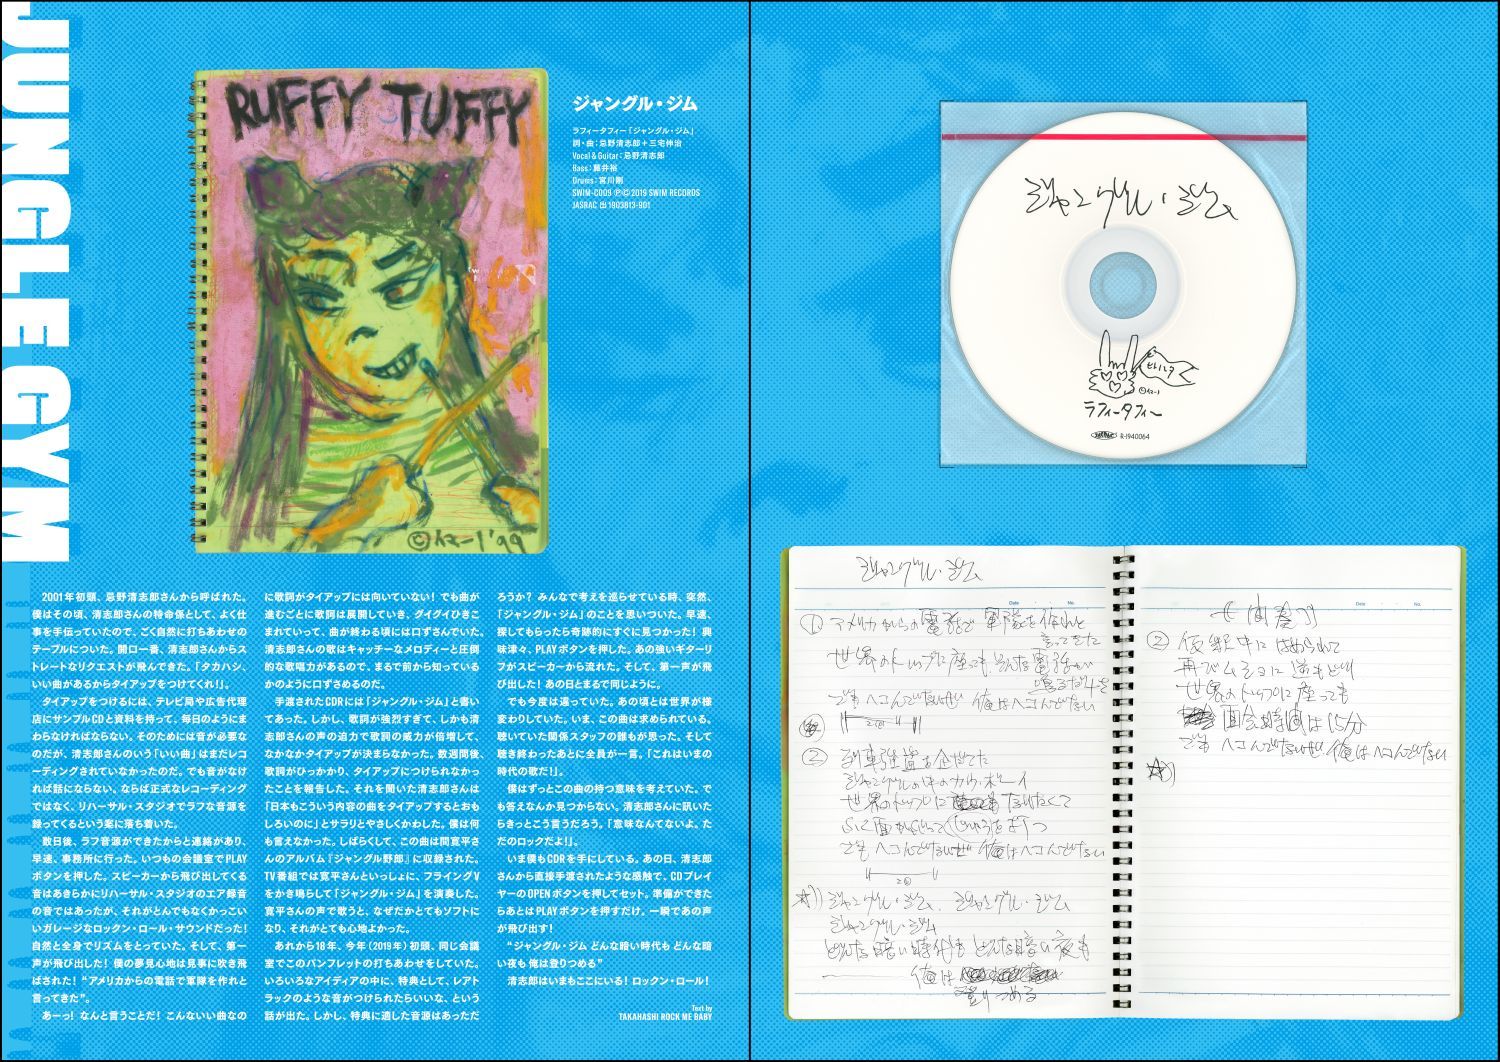 JUNGLE GYM
RUFFY TUFFY
©イマーノ'99
ジャングル・ジム
ラフィータフィー「ジャングル・ジム」
詞・曲：忌野清志郎＋三宅伸治
Vocal & Guitar：忌野清志郎
Bass：藤井裕
Drums：宮川剛
SWIM-C009 ℗© 2019 SWIM RECORDS
JASRAC 出 1903813-901
2001年初頭、忌野清志郎さんから呼ばれた。
僕はその頃、清志郎さんの特命係として、よく仕
事を手伝っていたので、ごく自然に打ちあわせの
テーブルについた。開口一番、清志郎さんからス
トレートなリクエストが飛んできた。「タカハシ、
いい曲があるからタイアップをつけてくれ！」。
タイアップをつけるには、テレビ局や広告代理
店にサンプルCDと資料を持って、毎日のようにま
わらなければならない。そのためには音が必要な
のだが、清志郎さんのいう「いい曲」はまだレコ
ーディングされていなかったのだ。でも音がなけ
れば話にならない。ならば正式なレコーディング
ではなく、リハーサル・スタジオでラフな音源を
録ってくるという案に落ち着いた。
数日後、ラフ音源ができたからと連絡があり、
早速、事務所に行った。いつもの会議室でPLAY
ボタンを押した。スピーカーから飛び出してくる
音はあきらかにリハーサル・スタジオのエア録音
の音ではあったが、それがとんでもなくかっこい
いガレージなロックン・ロール・サウンドだった！
自然と全身でリズムをとっていた。そして、第一
声が飛び出した！ 僕の夢見心地は見事に吹き飛
ばされた！ “アメリカからの電話で軍隊を作れと
言ってきた”。
あーっ！ なんと言うことだ！ こんないい曲なの
に歌詞がタイアップには向いていない！ でも曲が
進むごとに歌詞は展開していき、グイグイひきこ
まれていって、曲が終わる頃には口ずさんでいた。
清志郎さんの歌はキャッチーなメロディーと圧倒
的な歌唱力があるので、まるで前から知っている
かのように口ずさめるのだ。
手渡されたCDRには「ジャングル・ジム」と書い
てあった。しかし、歌詞が強烈すぎて、しかも清
志郎さんの声の迫力で歌詞の威力が倍増して、
なかなかタイアップが決まらなかった。数週間後、
歌詞がひっかかり、タイアップにつけられなかっ
たことを報告した。それを聞いた清志郎さんは
「日本もこういう内容の曲をタイアップするとおも
しろいのに」とサラリとやさしくかわした。僕は何
も言えなかった。しばらくして、この曲は間寛平さ
んのアルバム『ジャングル野郎』に収録された。
TV番組では寛平さんといっしょに、フライングV
をかき鳴らして「ジャングル・ジム」を演奏した。
寛平さんの声で歌うと、なぜだかとてもソフトに
なり、それがとても心地よかった。
あれから18年、今年（2019年）初頭、同じ会議
室でこのパンフレットの打ちあわせをしていた。
いろいろなアイディアの中に、特典として、レアト
ラックのような音がつけられたらいいな、という
話が出た。しかし、特典に適した音源はあっただ
ろうか？ みんなで考えを巡らせている時、突然、
「ジャングル・ジム」のことを思いついた。早速、
探してもらったら奇跡的にすぐに見つかった！ 興
味津々、PLAYボタンを押した。あの強いギターリ
フがスピーカーから流れた。そして、第一声が飛
び出した！ あの日とまるで同じように。
でも今度は違っていた。あの頃とは世界が様
変わりしていた。いま、この曲は求められている。
聴いていた関係スタッフの誰もが思った。そして
聴き終わったあとに全員が一言。「これはいまの
時代の歌だ！」。
僕はずっとこの曲の持つ意味を考えていた。で
も答えなんか見つからない。清志郎さんに訊いた
らきっとこう言うだろう。「意味なんてないよ。た
だのロックだよ！」。
いま僕もCDRを手にしている。あの日、清志郎
さんから直接手渡されたような感触で、CDプレイ
ヤーのOPENボタンを押してセット。準備ができた
らあとはPLAYボタンを押すだけ。一瞬であの声
が飛び出す！
“ジャングル・ジム どんな暗い時代も どんな暗
い夜も 俺は登りつめる”
清志郎はいまもここにいる！ ロックン・ロール！
Text by
TAKAHASHI ROCK ME BABY
ジャングル・ジム
ラフィータフィー
JASRAC R-1940064
ジャングル・ジム
Date No.
① アメリカからの電話で 軍隊を作れと
言ってきた
世界のトップに座っても そんな電話が
鳴るだけさ
でも ヘコんでないぜ 俺はヘコんでない
② 列車強盗を企てた
ジャングルの中のカウボーイ
世界のトップに なりたくて
でも ヘコんでないぜ 俺はヘコんでない
☆)) ジャングル・ジム、ジャングル・ジム
ジャングル・ジム
どんな暗い時代も どんな暗い夜も
俺は
登りつめる
Date No.
《間奏》
② 仮釈中に はめられて
再びムショに逆もどり
世界のトップに座っても
面会時間は15分
でも ヘコんでないぜ 俺はヘコんでない
☆))